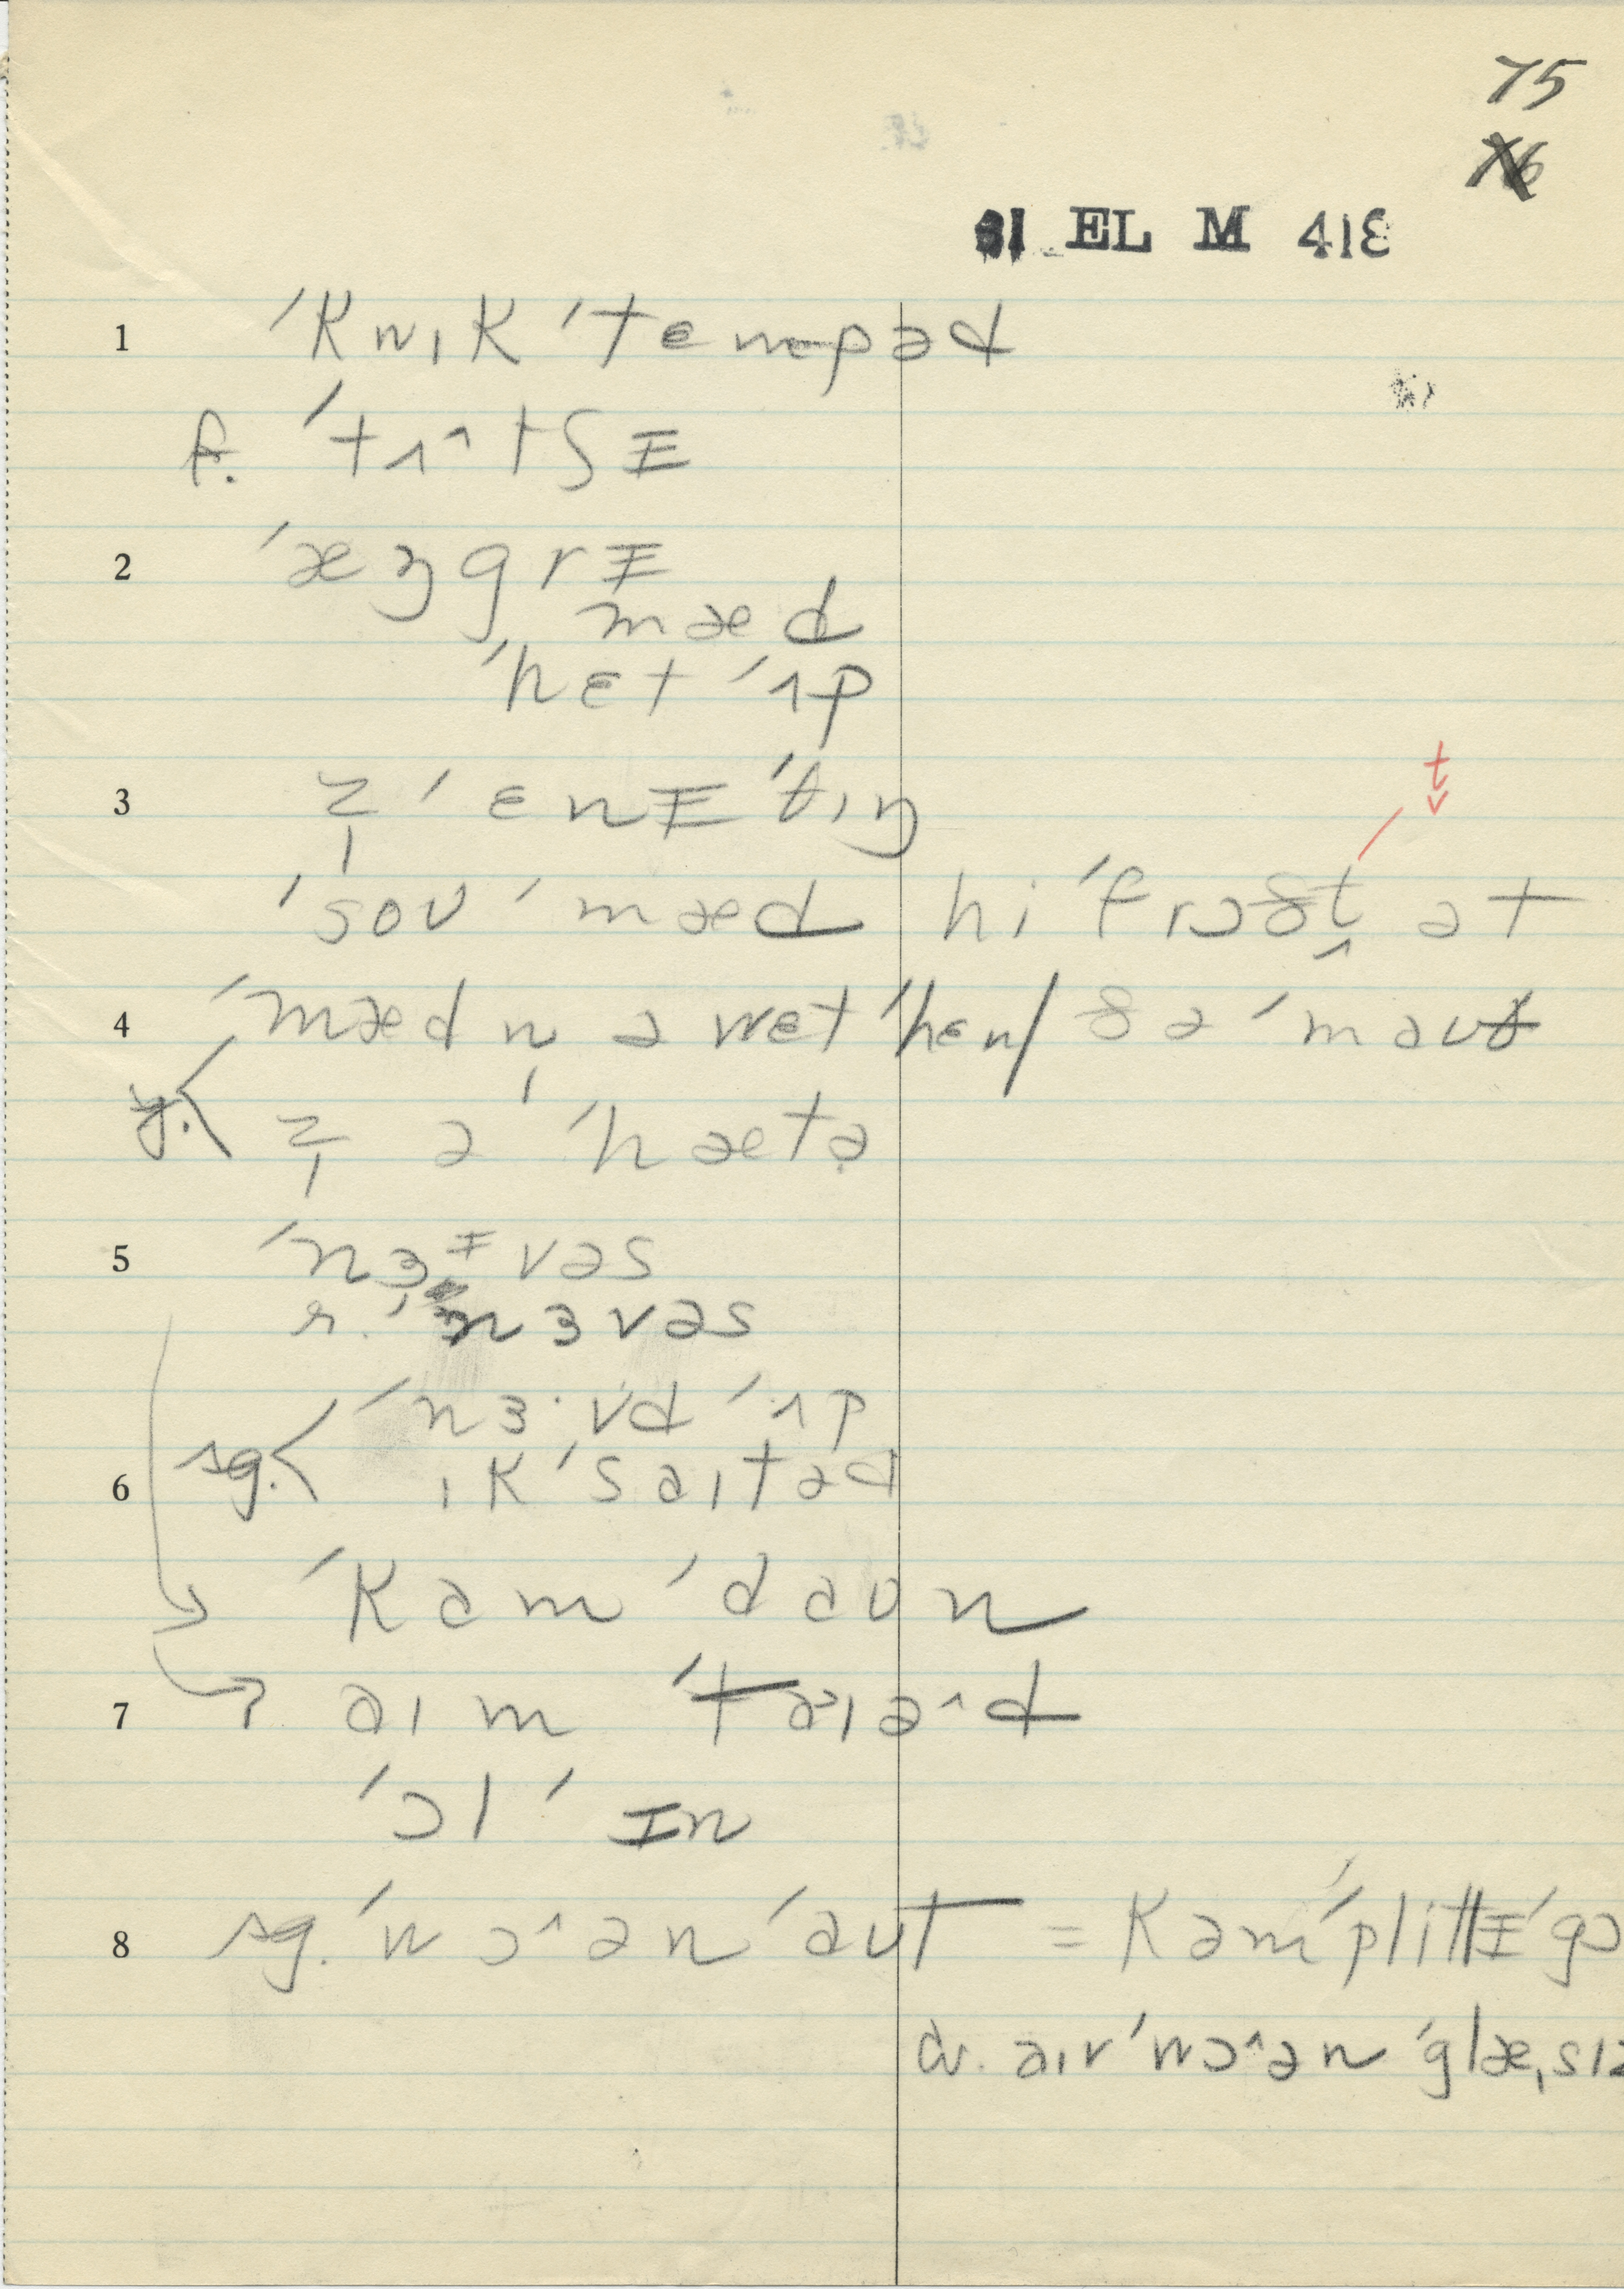 75
76
81 EL M 418
1 ˈkwɪk ˈtɛmpəd
f. ˈtʌ^tʃɪ
2 ˈæŋgrɪ
mæd
ˈhɛt ˈʌp
3 z̩ ˈɛnɪˈtɪŋ
t̬
ˈsoʊ ˈmæd hi ˈfrɔðt̬ ət
4 ˈmæd n̩ ə wɛt ˈhɛn/ ðə ˈmaʊð
y.< z̩ ə ˈhætə̣
5 ˈnɜɪvəs
r. ˈnɜvəs
ˈnɜ·vd ˈʌp
6 sg.< ɪkˈsaɪtəd
ˈkam ˈdaʊn
7 aɪm ˈtaɪə^d
ˈɔl ˈɪn
8 sg. ˈwɔ^ən ˈaʊt = kəmˈplitlɪ ˈgɔ
cv. aɪv ˈwɔ^ən ˈglæˌsɪz